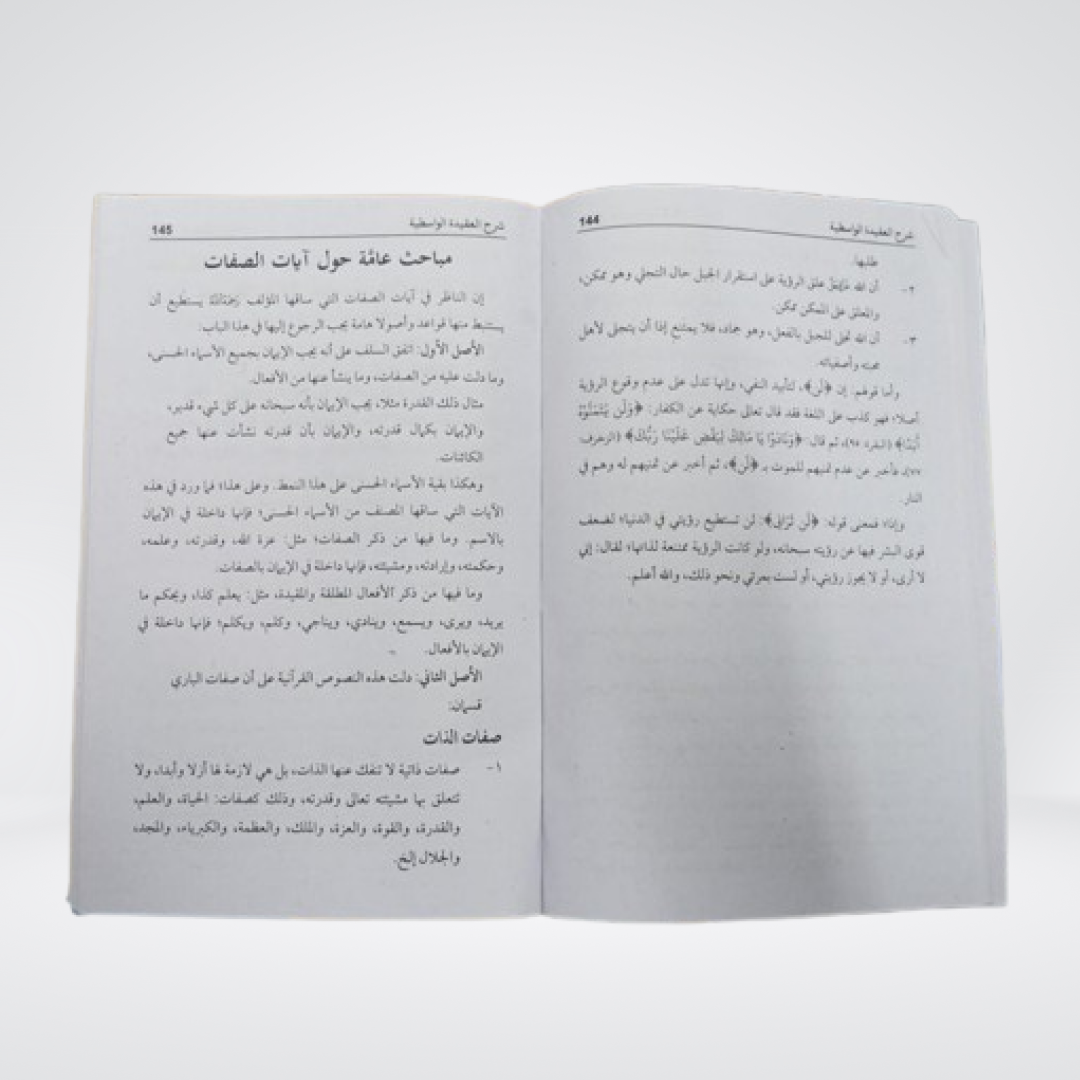 شرح العقيدة الواسطية
144
طلبها.
٢- أن الله علق الرؤية على استقرار الجبل حال التجلي وهو ممكن،
والمعلق على الممكن ممكن.
٣- أن الله تجلى للجبل بالفعل، وهو جماد، فلا يمتنع إذًا أن يتجلى لأهل
محبته وأصفيائه.
وأما قولهم: إن ﴿لَن﴾، لتأبيد النفي، وإنها تدل على عدم وقوع الرؤية
أصلا؛ فهو كذب على اللغة فقد قال تعالى حكاية عن الكفار: ﴿وَلَن يَتَمَنَّوْهُ
أَبَدًا﴾ (البقرة: ٩٥)، ثم قال: ﴿وَنَادَوْا يَا مَالِكُ لِيَقْضِ عَلَيْنَا رَبُّكَ﴾ (الزخرف:
٧٧)، فأخبر عن عدم تمنيهم للموت بـ ﴿لَن﴾، ثم أخبر عن تمنيهم له وهم في
النار.
وإذا؛ فمعنى قوله: ﴿لَن تَرَانِي﴾: لن تستطيع رؤيتي في الدنيا؛ لضعف
قوى البشر فيها عن رؤيته سبحانه، ولو كانت الرؤية ممتنعة لذاتها؛ لقال: إني
لا أرى، أو لا يجوز رؤيتي، أو لست بمرئي ونحو ذلك، والله أعلم.
شرح العقيدة الواسطية
145
مباحث عامّة حول آيات الصفات
إن الناظر في آيات الصفات التي ساقها المؤلف رَحِمَهُ اللَّهُ يستطيع أن
يستنبط منها قواعد وأصولا هامة يجب الرجوع إليها في هذا الباب:
الأصل الأول: اتفق السلف على أنه يجب الإيمان بجميع الأسماء الحسنى،
وما دلت عليه من الصفات، وما ينشأ عنها من الأفعال.
مثال ذلك القدرة مثلا، يجب الإيمان بأنه سبحانه على كل شيء قدير،
والإيمان بكمال قدرته، والإيمان بأن قدرته نشأت عنها جميع
الكائنات.
وهكذا بقية الأسماء الحسنى على هذا النمط. وعلى هذا؛ فما ورد في هذه
الآيات التي ساقها المصنف من الأسماء الحسنى؛ فإنها داخلة في الإيمان
بالاسم. وما فيها من ذكر الصفات؛ مثل: عزة الله، وقدرته، وعلمه،
وحكمته، وإرادته، ومشيئته، فإنها داخلة في الإيمان بالصفات.
وما فيها من ذكر الأفعال المطلقة والمقيدة، مثل: يعلم كذا، ويحكم ما
يريد، ويرى، ويسمع، وينادي، ويناجي، وكلم، ويكلم؛ فإنها داخلة في
الإيمان بالأفعال.
الأصل الثاني: دلت هذه النصوص القرآنية على أن صفات الباري
قسمان:
صفات الذات
١- صفات ذاتية لا تنفك عنها الذات، بل هي لازمة لها أزلا وأبدا، ولا
تتعلق بها مشيئته تعالى وقدرته، وذلك كصفات: الحياة، والعلم،
والقدرة، والقوة، والعزة، والملك، والعظمة، والكبرياء، والمجد،
والجلال إلخ.